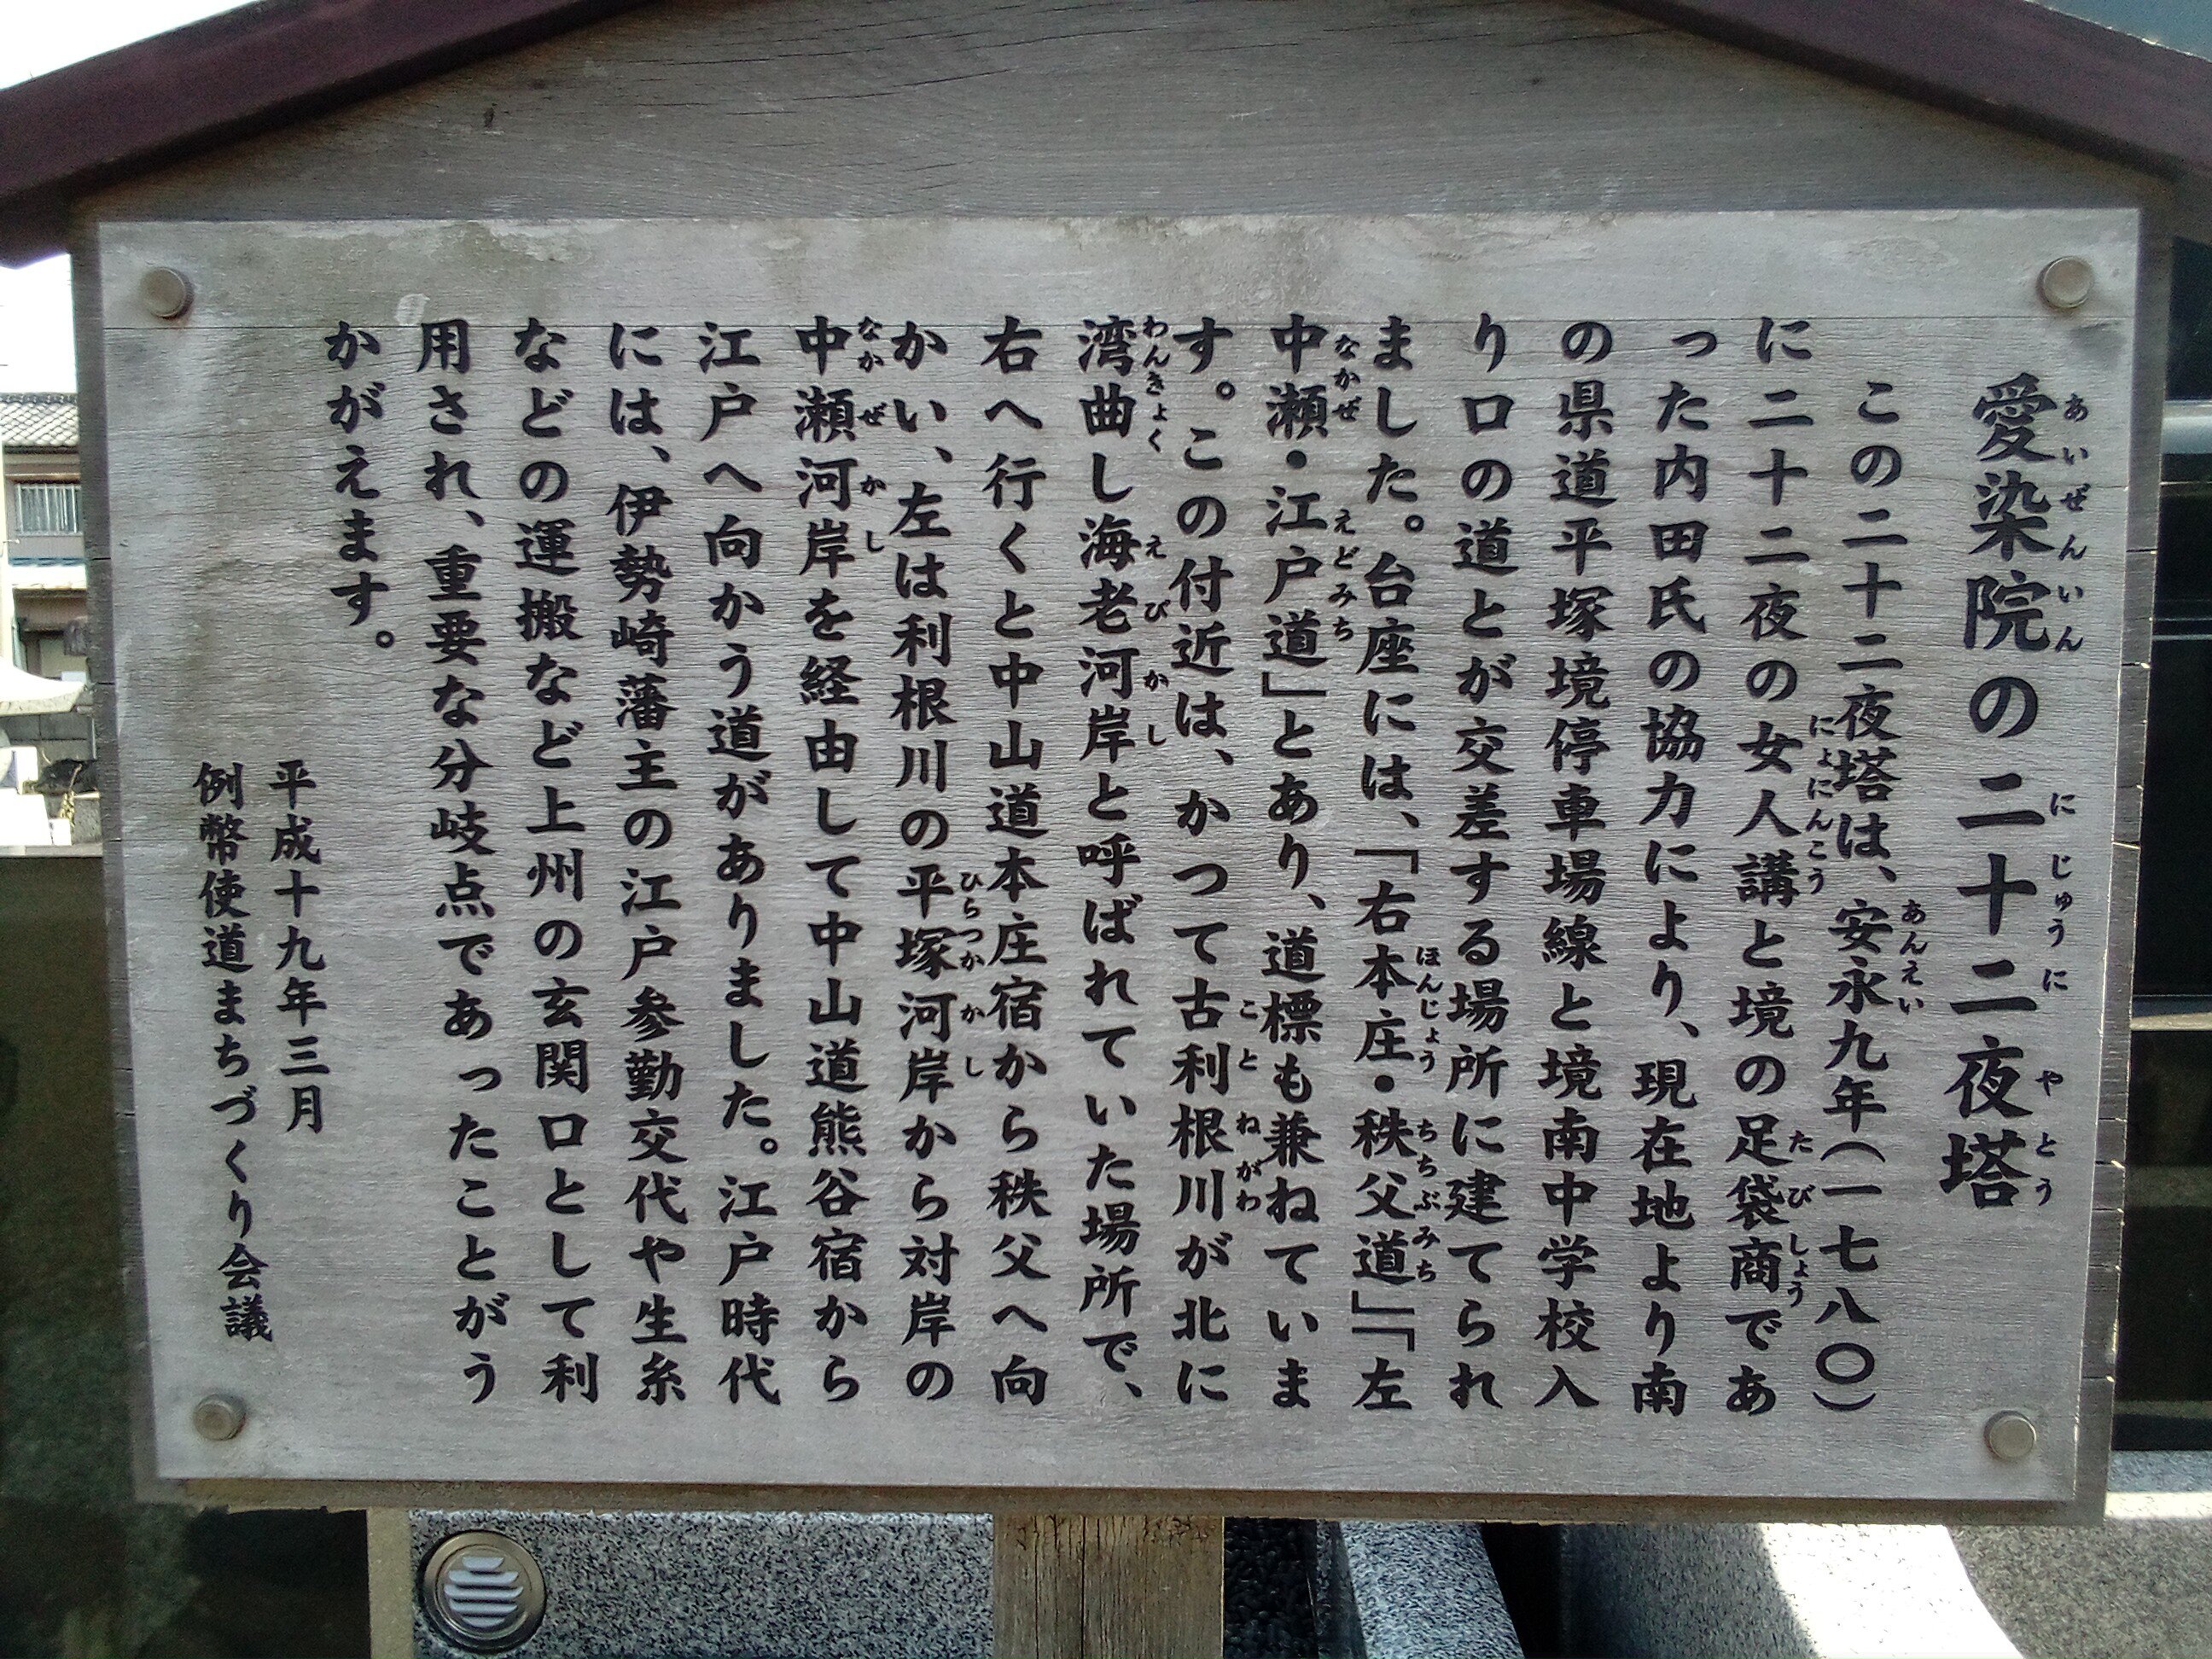 愛染院の二十二夜塔
この二十二夜塔は、安永九年（一七八〇）
に二十二夜の女人講と境の足袋商であ
った内田氏の協力により、現在地より南
の県道平塚境停車場線と境南中学校入
り口の道とが交差する場所に建てられ
ました。台座には、「右本庄・秩父道」「左
中瀬・江戸道」とあり、道標も兼ねていま
す。この付近は、かつて古利根川が北に
湾曲し海老河岸と呼ばれていた場所で、
右へ行くと中山道本庄宿から秩父へ向
かい、左は利根川の平塚河岸から対岸の
中瀬河岸を経由して中山道熊谷宿から
江戸へ向かう道がありました。江戸時代
には、伊勢崎藩主の江戸参勤交代や生糸
などの運搬など上州の玄関口として利
用され、重要な分岐点であったことがう
かがえます。
平成十九年三月
例幣使道まちづくり会議